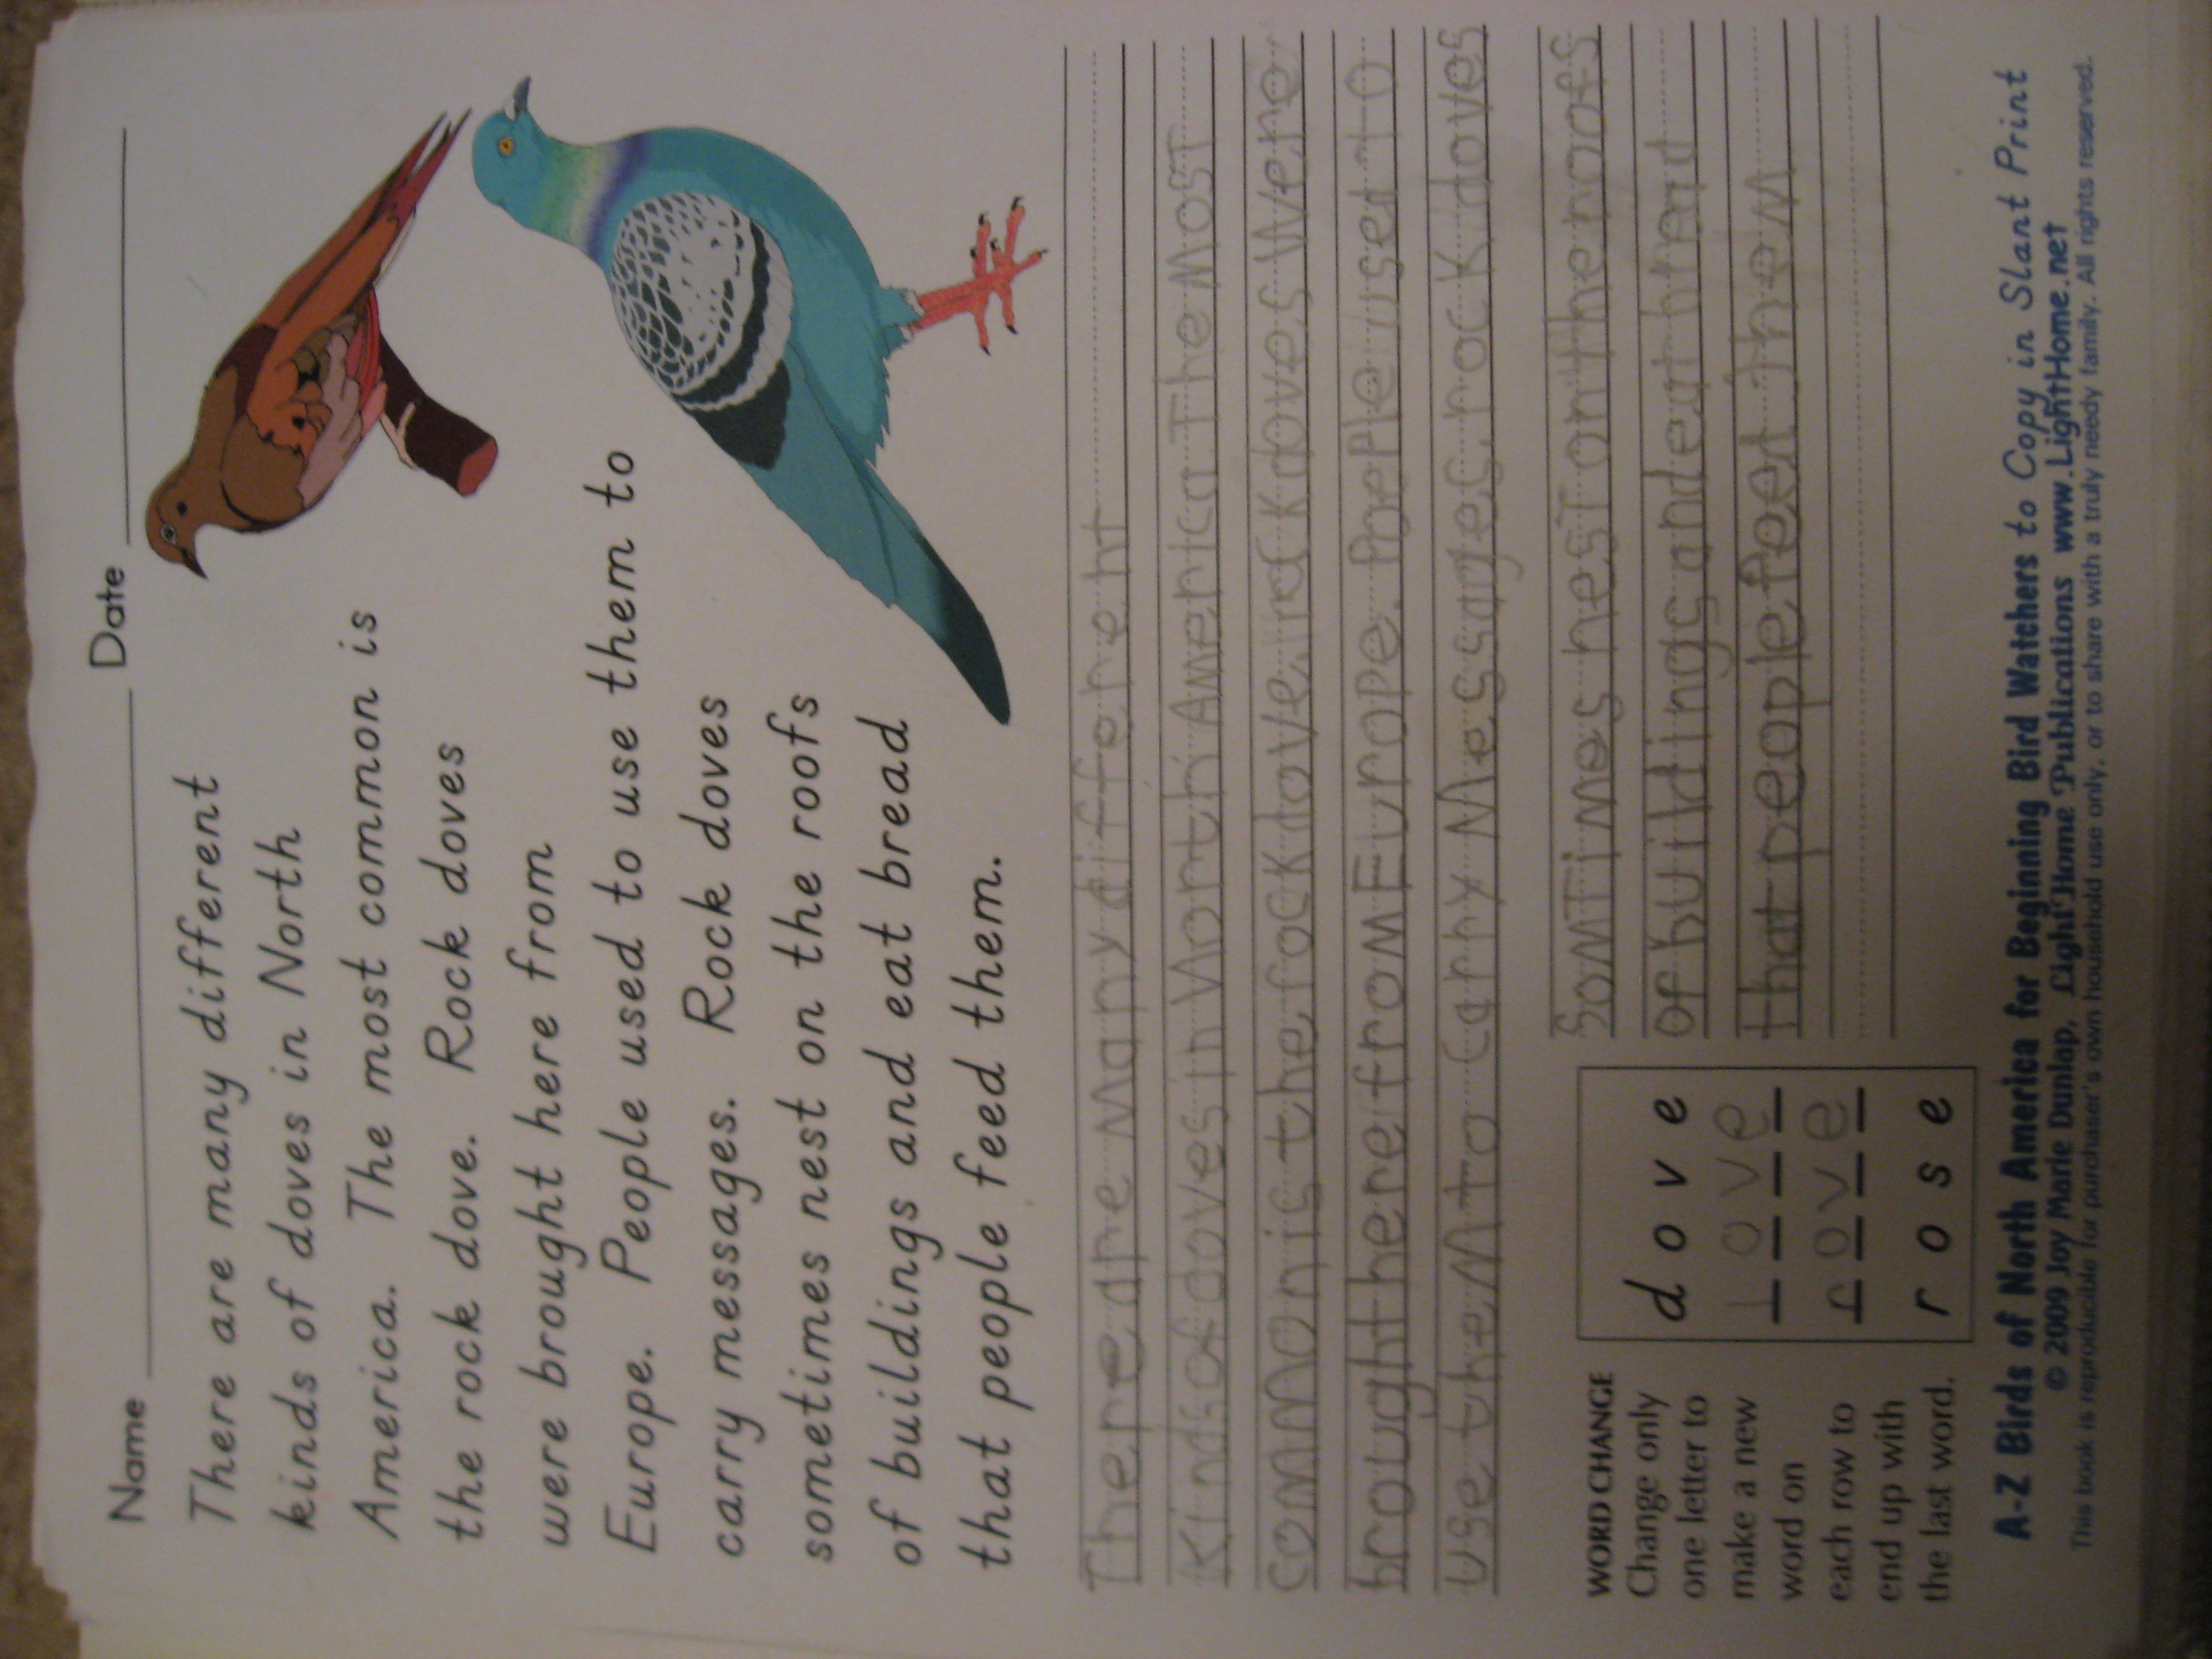 Name Date
There are many different
kinds of doves in North
America. The most common is
the rock dove. Rock doves
were brought here from
Europe. People used to use them to
carry messages. Rock doves
sometimes nest on the roofs
of buildings and eat bread
that people feed them.
There are Many different
Kinds of doves in North America The Most
common is the rock dove. rock doves were
brought here from Europe. People used to
use theM to carry Messages. rock doves
SomTimes nesT on the roofs
of buildings and eat
that people feed them
WORD CHANGE
Change only
one letter to
make a new
word on
each row to
end up with
the last word.
d o v e
l o v e
r o v e
r o s e
A-Z Birds of North America for Beginning Bird Watchers to Copy in Slant Print
© 2009 Joy Marie Dunlap, Light Home Publications www.LightHome.net
This book is reproducible for purchaser's own household use only, or to share with a truly needy family. All rights reserved.